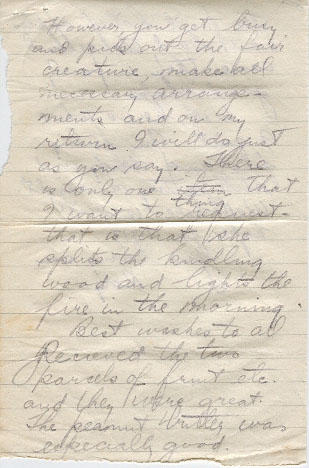 However you get busy
and pick out the fair
creature, make all
necessary arrange-
ments and on my
return I will do just
as you say. There
is only one thing that
I want to request-
that is that she
splits the kindling
wood and lights the
fire in the morning.
Best wishes to al
Recieved the two
parcels of fruit etc.
and they were great.
The peanut butter was
especially good.